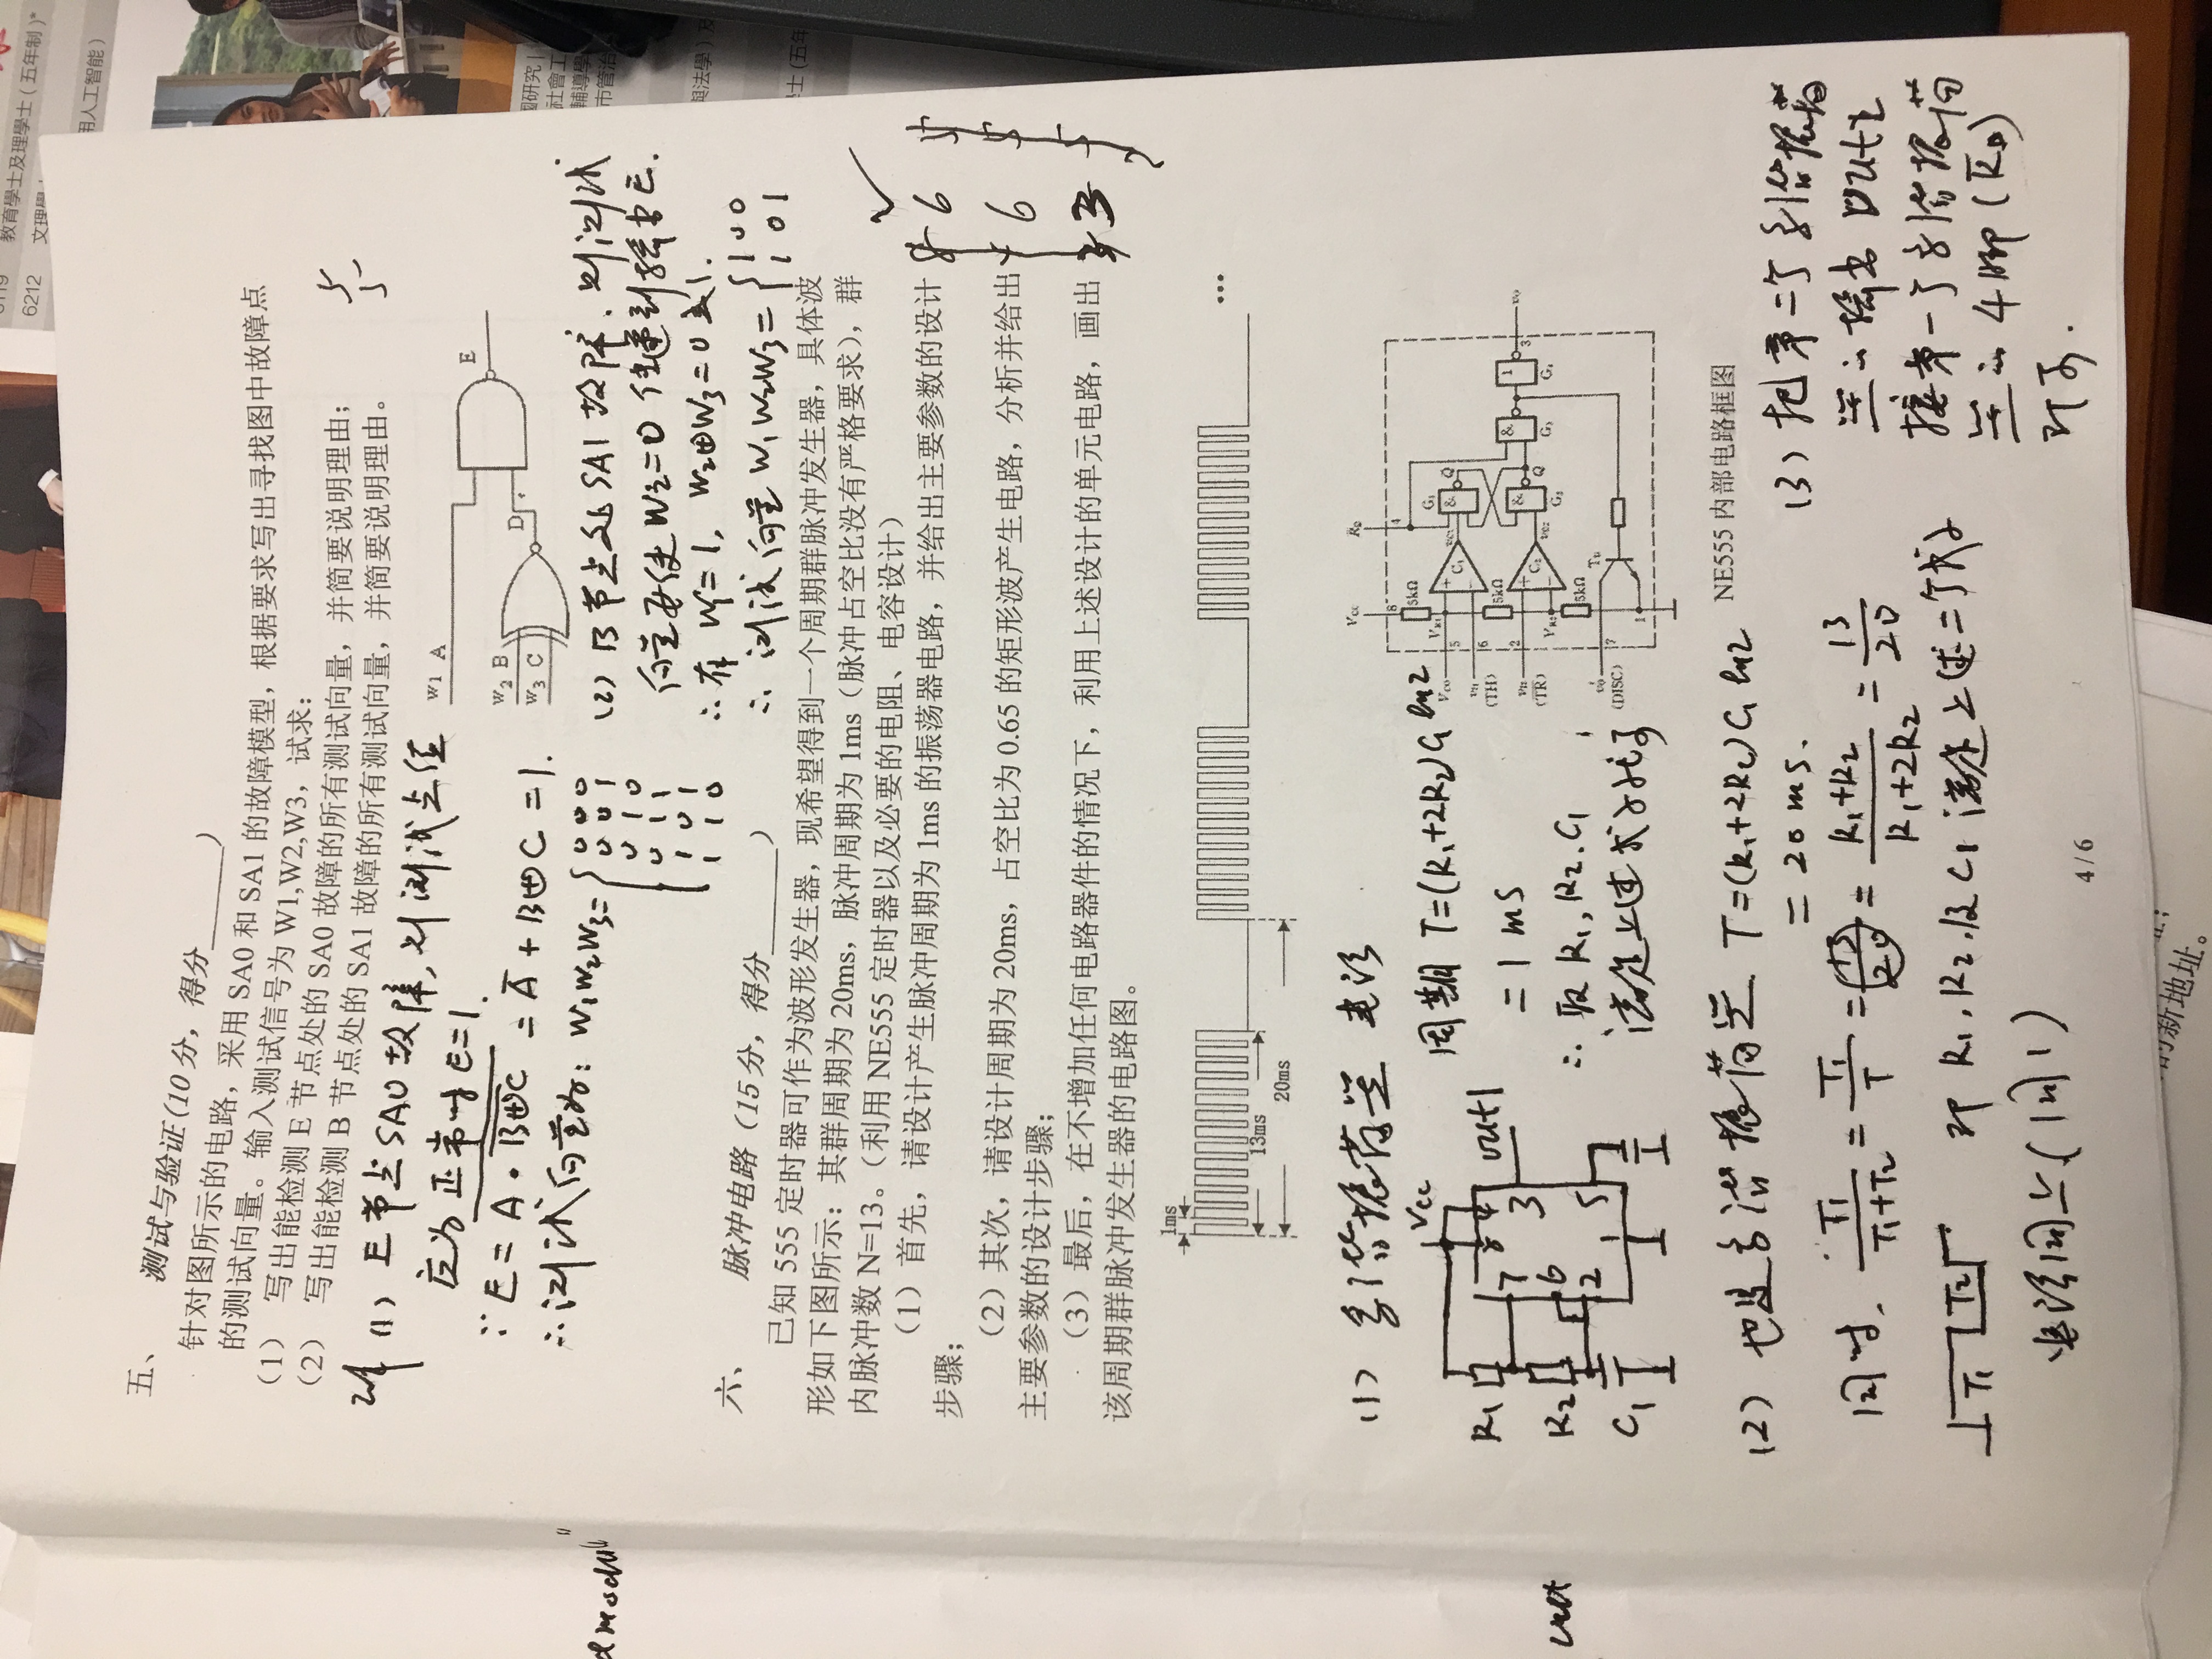 6119 教育學士及理學士（五年制）*
6212 文理學
用人工智能）
五、 测试与验证(10 分，得分______)
针对图所示的电路，采用 SA0 和 SA1 的故障模型，根据要求写出寻找图中故障点
的测试向量。输入测试信号为 W1,W2,W3，试求：
（1） 写出能检测 E 节点处的 SA0 故障的所有测试向量，并简要说明理由；
（2） 写出能检测 B 节点处的 SA1 故障的所有测试向量，并简要说明理由。
5
5
(1) E 节点 SA0 故障, 则测试点值
应为正常时 E=1.
∵ E = \overline{A·\overline{B⊕C}} = \overline{A} + B⊕C = 1.
∴ 测试向量为: W₁W₂W₃= { 0 0 0
0 0 1
0 1 0
0 1 1
1 0 1
1 1 0
W1 A
W2 B
W3 C
D
E
(2) B 节点处 SA1 故障, 则测试
向量要使 W₂=0 传递到输出 E.
∴ 有 W₁=1, W₂⊕W₃=0 或 1.
∴ 测试向量 W₁W₂W₃= { 1 0 0
1 0 1
六、 脉冲电路（15 分，得分______)
已知 555 定时器可作为波形发生器，现希望得到一个周期群脉冲发生器，具体波
形如下图所示：其群周期为 20ms，脉冲周期为 1ms（脉冲占空比没有严格要求），群
内脉冲数 N=13。（利用 NE555 定时器以及必要的电阻、电容设计）
（1）首先，请设计产生脉冲周期为 1ms 的振荡器电路，并给出主要参数的设计
步骤；
（2）其次，请设计周期为 20ms，占空比为 0.65 的矩形波产生电路，分析并给出
主要参数的设计步骤；
（3）最后，在不增加任何电路器件的情况下，利用上述设计的单元电路，画出
该周期群脉冲发生器的电路图。
6 5
6 5
3 5
1ms
13ms
20ms
...
(1) 多谐振荡器 电路
Vcc
R₁
R₂
C₁
7 8 4 3
6
2 1 5
out1
周期 T=(R₁+2R₂)C₁ ln2
= 1 ms
∴ 取 R₁, R₂, C₁
满足上述式子就可
Vcc
R_D
8
4
5kΩ
V_CO 5 V_R1
C₁ v_C1
G₁ & Q
(TH) 6
5kΩ
2
(TR)
C₂ v_C2
V_R2
G₂ & Q
G₃ &
G₄ 1
3 v_O
5kΩ
(DISC) 7
T_D
1
NE555 内部电路框图
(2) 也是多谐振荡器 T=(R₁+2R₂)C₁ ln2
= 20 ms.
同时, T₁/(T₁+T₂) = T₁/T = 13/20 = (R₁+R₂)/(R₁+2R₂) = 13/20
T₁ T₂
即 R₁, R₂, 及 C₁ 满足上述二个式子
电路同上 (同 1)
(3) 把第二个多谐振荡
器的输出 out2
接第一个多谐振荡
器的 4 脚 (\overline{R}_D)
即可.
4 / 6
的新地址。